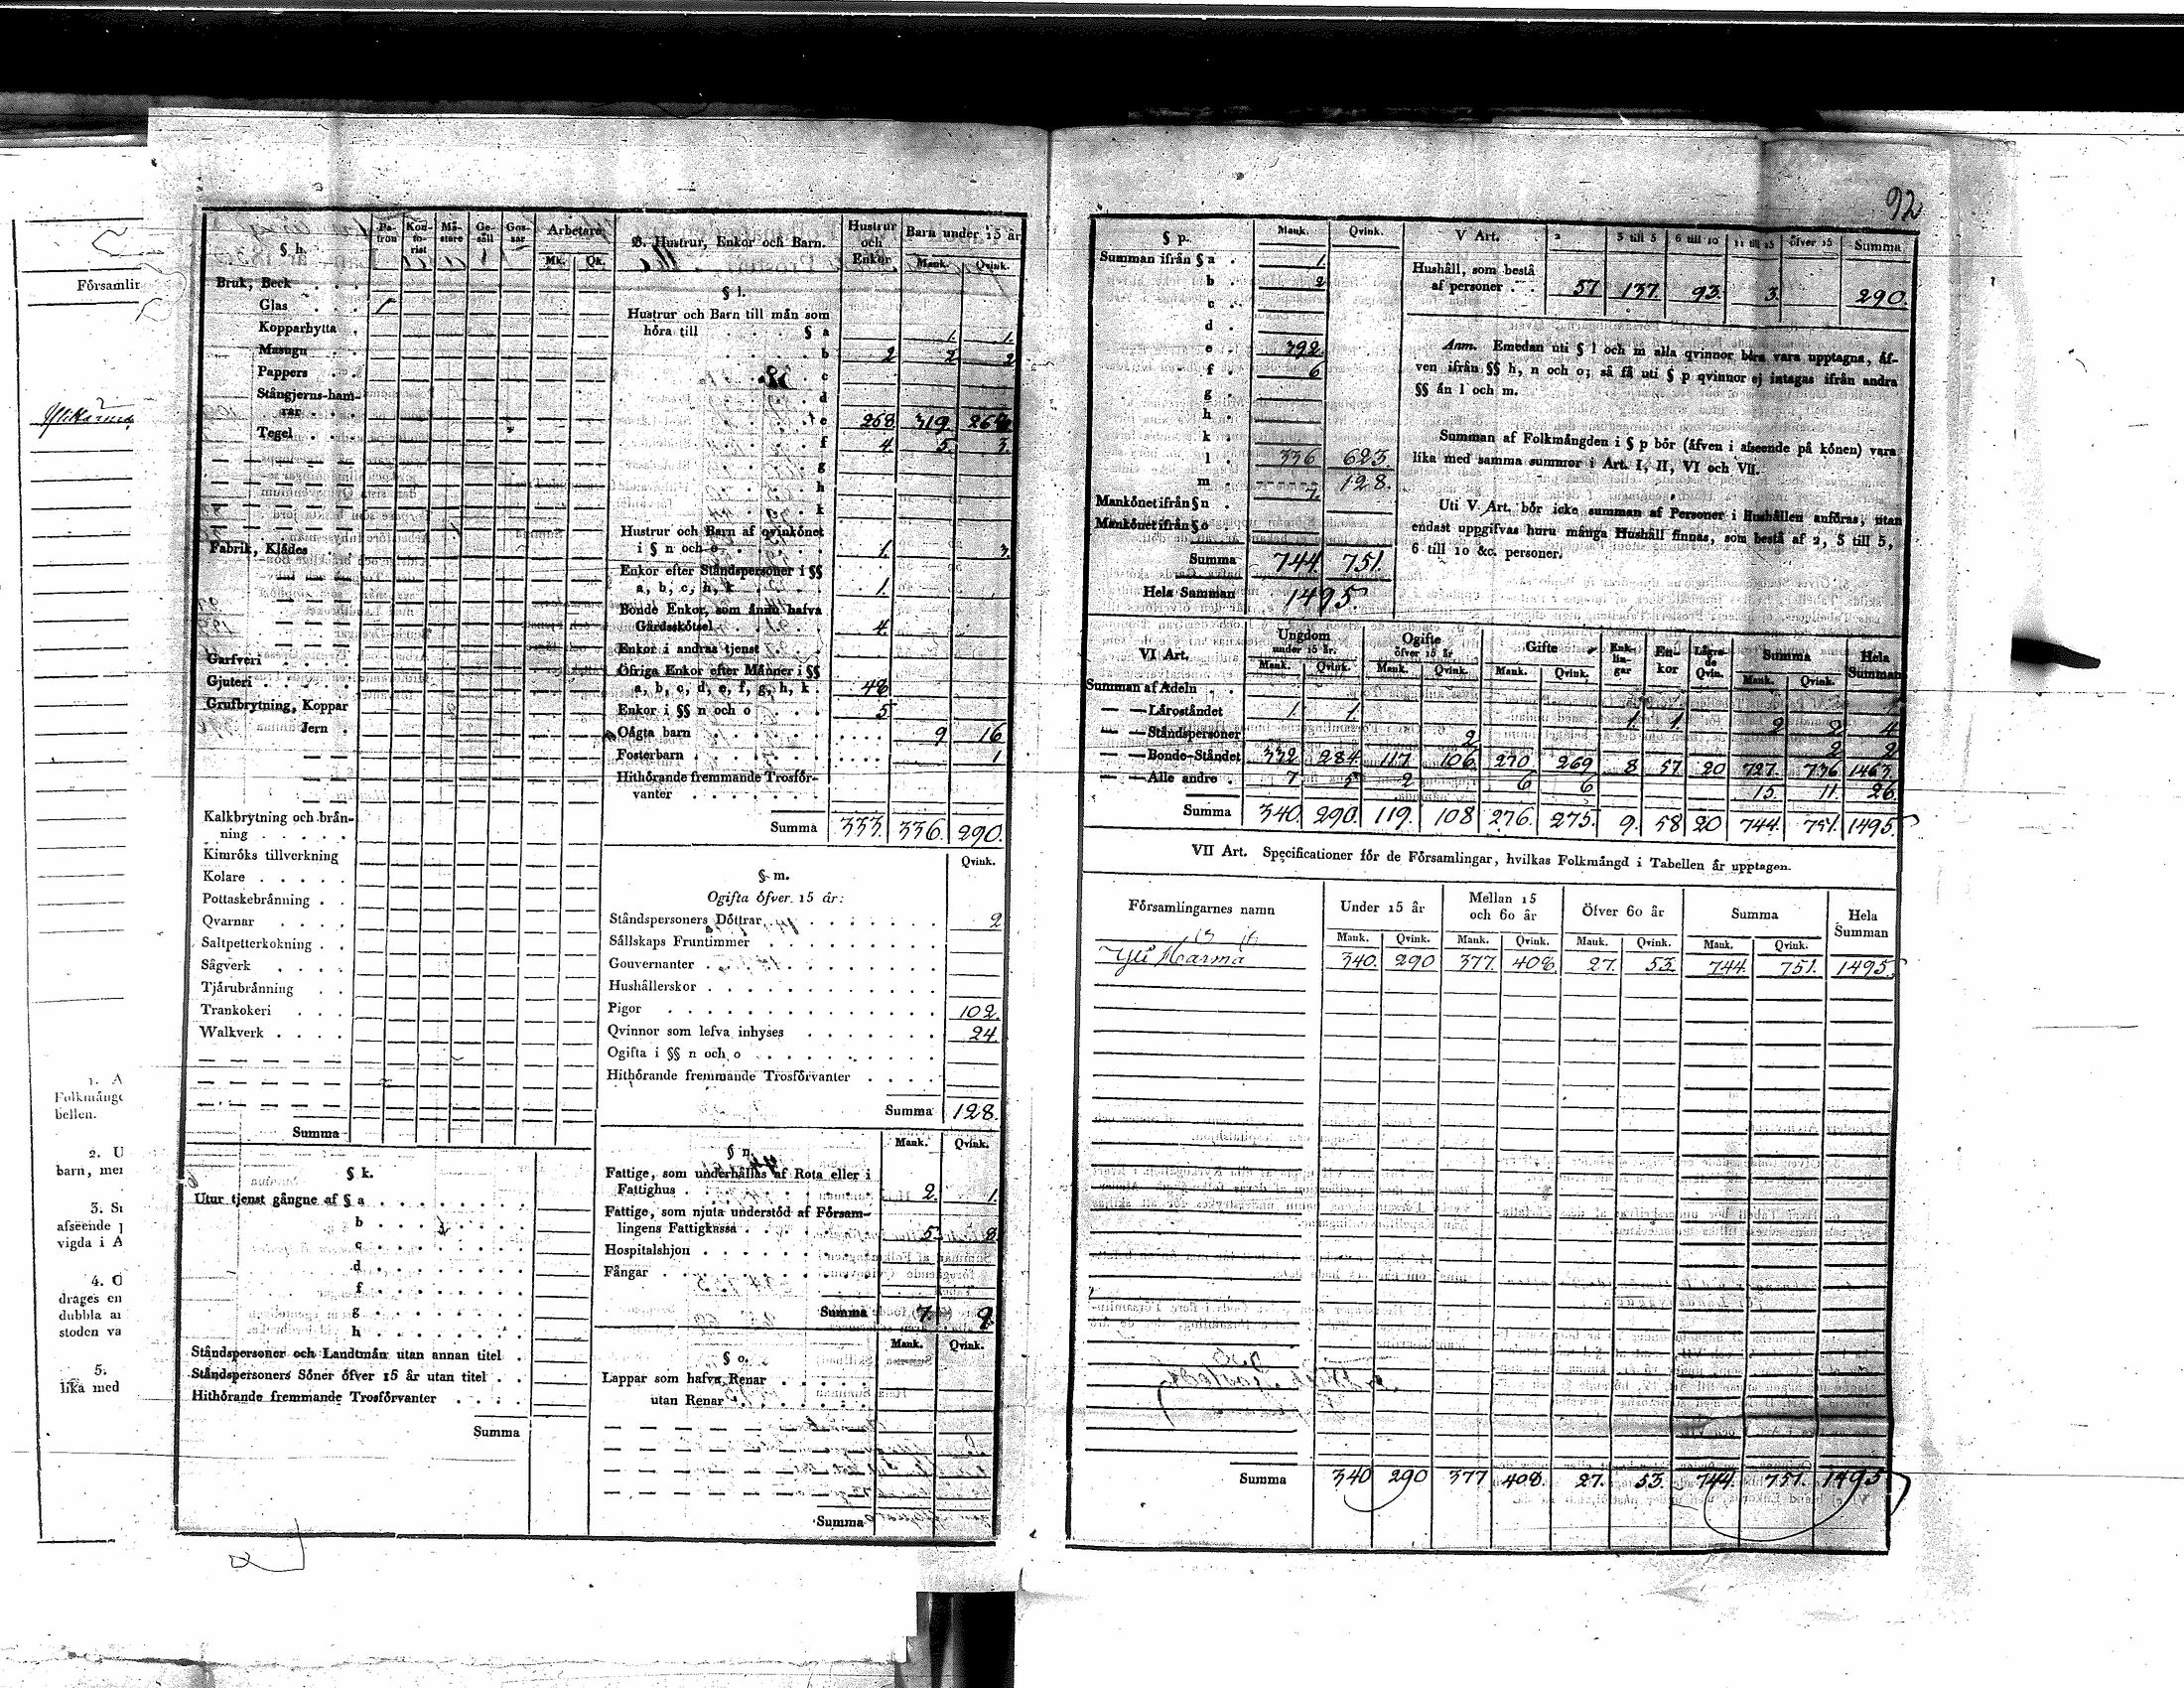 92
Församlin
Yllikärma
1. A
Folkmängd
bellen.
2. U
barn, mer
3. Su
afseende p
vigda i A
4. O
drages en
dubbla an
stoden va
5.
lika med
§ h. Pa-tron Kon-to-rist Mä-stare Ge-säll Gos-sar Arbetare Mk. Qk.
Bruk, Beck . . .
Glas . . .
Kopparhytta .
Masugn . .
Pappers . . .
Stångjerns-ham-
rar . . .
Tegel . . .
Fabrik, Klädes . . .
Garfveri . . . .
Gjuteri . . . . .
Grufbrytning, Koppar
Jern .
Kalkbrytning och brän-
ning . . . . .
Kimröks tillverkning
Kolare . . . . .
Pottaskebränning . .
Qvarnar . . . .
Saltpetterkokning . .
Sågverk . . . .
Tjärubränning . .
Trankokeri . . .
Walkverk . . . .
Summa
§ k.
Utur tjenst gångne af § a . . . . . . .
b . . . . . . .
c . . . . . . .
d . . . . . . .
f . . . . . . .
g . . . . . . .
h . . . . . . .
Ståndspersoner och Landtmän utan annan titel .
Ståndspersoners Söner öfver 15 år utan titel . .
Hithörande fremmande Trosförvanter . . . .
Summa
B. Hustrur, Enkor och Barn. Hustrur och Enkor Barn under 15 år Mank. Qvink.
§ l.
Hustrur och Barn till män som
höra till . . . . § a 1. 1.
b 2 2 2
c
d
e 268. 319.
f 4. 5. 3.
g
h
k
Hustrur och Barn af qvinkönet
i § n och o . . . . . 1. 3.
Enkor efter Ståndspersoner i §§
a, b, c, h, k . . . . 1.
Bonde Enkor, som ännu hafva
Gårdsskötsel . . . . 4.
Enkor i andras tjenst . . .
Öfriga Enkor efter Männer i §§
a, b, c, d, e, f, g, h, k . 48
Enkor i §§ n och o . . . 5
Oägta barn . . . . . . . . . . 9 16
Fosterbarn . . . . . . . . . . 1
Hithörande fremmande Trosför-
vanter . . . . . . .
Summa 333. 336. 290.
§ m. Qvink.
Ogifta öfver 15 år:
Ståndspersoners Döttrar . . . . . . . . 2
Sällskaps Fruntimmer . . . . . . . .
Gouvernanter . . . . . . . . . . .
Hushållerskor . . . . . . . . . . .
Pigor . . . . . . . . . . . . . 102.
Qvinnor som lefva inhyses . . . . . . . 24.
Ogifta i §§ n och o . . . . . . . . .
Hithörande fremmande Trosförvanter . . . .
Summa 128.
§ n. Mank. Qvink.
Fattige, som underhållas af Rota eller i
Fattighus . . . . . . . . . 2. 1.
Fattige, som njuta understöd af Försam-
lingens Fattigkassa . . . . . . 5. 8.
Hospitalshjon . . . . . . . .
Fångar . . . . . . . . . .
Summa 7. 9.
§ o. Mank. Qvink.
Lappar som hafva Renar . . . . .
utan Renar . . . . . .
Summa
§ p. Mank. Qvink.
Summan ifrån § a . 1.
b . 2
c .
d .
e . 392.
f . 6
g .
h .
k .
l . 336 623.
m . 128.
Mankönet ifrån § n . 7.
Mankönet ifrån § o .
Summa 744. 751.
Hela Summan 1495.
V Art. 2 3 till 5 6 till 10 11 till 15 öfver 15 Summa
Hushåll, som bestå
af personer . . . 57 137. 93. 3. 290.
Anm. Emedan uti § l och m alla qvinnor böra vara upptagna, äf-
ven ifrån §§ h, n och o; så få uti § p qvinnor ej intagas ifrån andra
§§ än l och m.
Summan af Folkmängden i § p bör (äfven i afseende på könen) vara
lika med samma summor i Art. I, II, VI och VII.
Uti V Art. bör icke summan af Personer i Hushållen anföras, utan
endast uppgifvas huru många Hushåll finnas, som bestå af 2, 3 till 5,
6 till 10 &c. personer.
VI Art. Ungdom under 15 år. Ogifte öfver 15 år Gifte Enk-lin-gar En-kor Lägra-de Qvin. Summa Hela Summan
Mank. Qvink. Mank. Qvink. Mank. Qvink. Mank. Qvink.
Summan af Adeln . .
— — Läroståndet 1. 1. 1. 1. 2 2 4
— — Ståndspersoner 2 2 2
— — Bonde-Ståndet 332 284. 117 106 270 269 8 57 20 727. 736 1463.
— — Alle andre . 7 5 2 6 6 15. 11. 26.
Summa 340. 290. 119. 108 276. 275. 9. 58 20 744. 751. 1495.
VII Art. Specificationer för de Församlingar, hvilkas Folkmängd i Tabellen är upptagen.
Församlingarnes namn Under 15 år Mellan 15 och 60 år Öfver 60 år Summa Hela Summan
Mank. Qvink. Mank. Qvink. Mank. Qvink. Mank. Qvink.
Yli Karma 340. 290 377. 408. 27. 53. 744. 751. 1495.
Summa 340 290 377 408. 27. 53. 744. 751. 1495